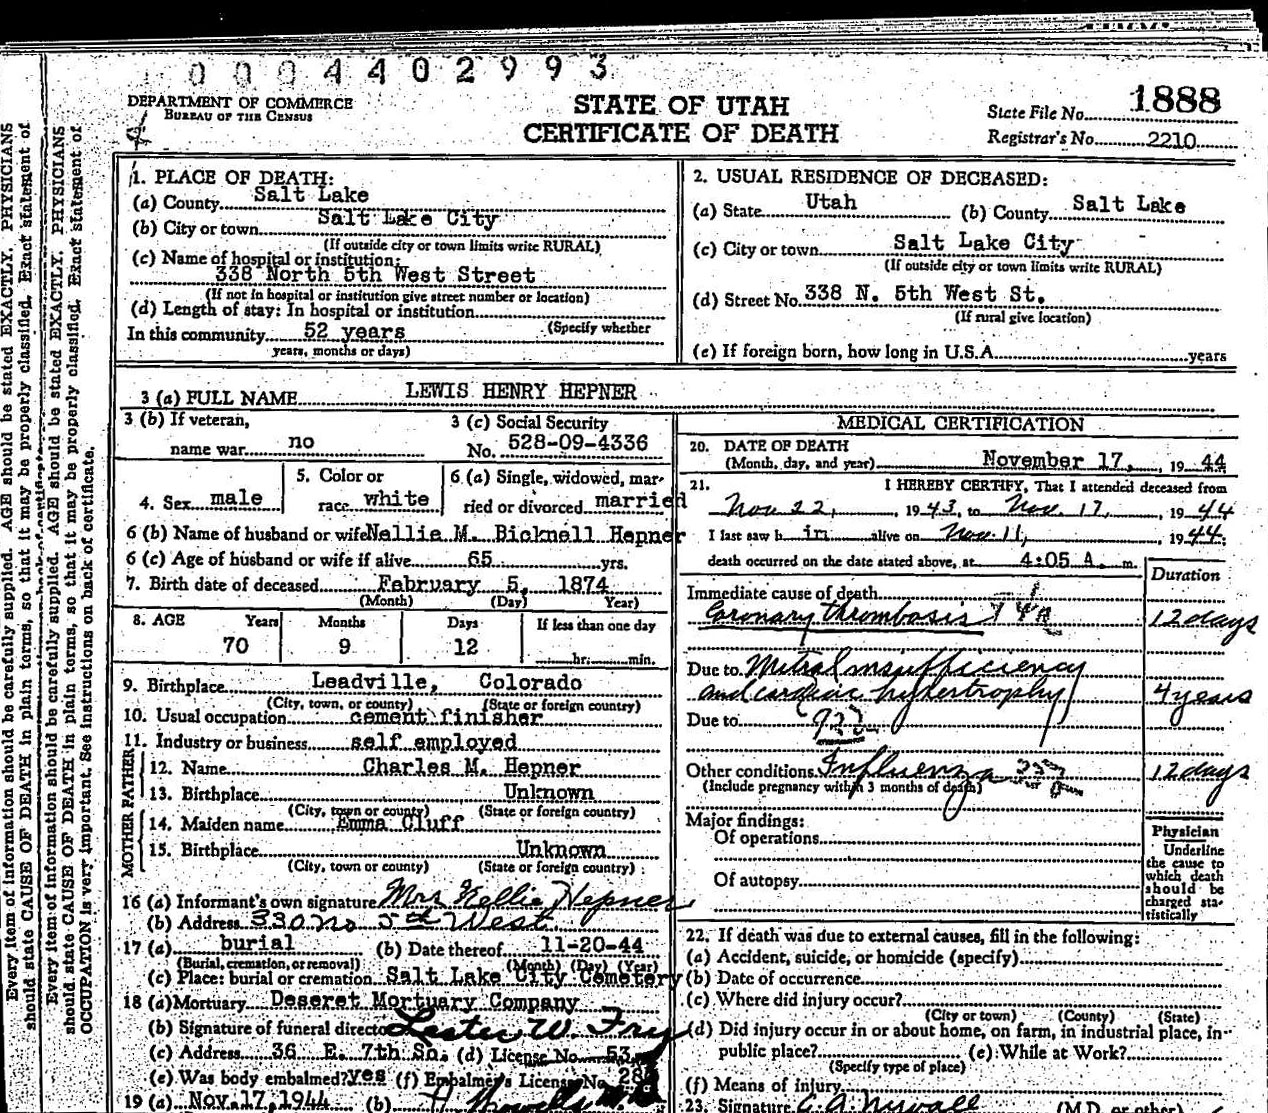 0004402993
DEPARTMENT OF COMMERCE
BUREAU OF THE CENSUS
STATE OF UTAH
CERTIFICATE OF DEATH
State File No. 1888
Registrar's No. 2210
1. PLACE OF DEATH:
(a) County Salt Lake
(b) City or town Salt Lake City
(If outside city or town limits write RURAL)
(c) Name of hospital or institution:
338 North 5th West Street
(If not in hospital or institution give street number or location)
(d) Length of stay: In hospital or institution
(Specify whether
In this community 52 years
years, months or days)
2. USUAL RESIDENCE OF DECEASED:
(a) State Utah (b) County Salt Lake
(c) City or town Salt Lake City
(If outside city or town limits write RURAL)
(d) Street No. 338 N. 5th West St.
(If rural give location)
(e) If foreign born, how long in U.S.A. years
3 (a) FULL NAME LEWIS HENRY HEPNER
3 (b) If veteran,
name war no
3 (c) Social Security
No. 528-09-4336
4. Sex male
5. Color or
race white
6 (a) Single, widowed, mar-
ried or divorced married
6 (b) Name of husband or wife Nellie M. Bicknell Hepner
6 (c) Age of husband or wife if alive 65 yrs.
7. Birth date of deceased February 5, 1874
(Month) (Day) Year)
8. AGE Years Months Days If less than one day
70 9 12 hr. min.
9. Birthplace Leadville, Colorado
(City, town, or county) (State or foreign country)
10. Usual occupation cement finisher
11. Industry or business self employed
FATHER
12. Name Charles M. Hepner
13. Birthplace Unknown
(City, town or county) (State or foreign country)
MOTHER
14. Maiden name Emma Cluff
15. Birthplace Unknown
(City, town or county) (State or foreign country)
16 (a) Informant's own signature Mrs Nellie Hepner
(b) Address 330 no 5th West
17 (a) burial (b) Date thereof 11-20-44
(Burial, cremation, or removal) (Month) (Day) (Year)
(c) Place: burial or cremation Salt Lake City Cemetery
18 (a) Mortuary Deseret Mortuary Company
(b) Signature of funeral director Lester W. Fry
(c) Address 36 E. 7th So. (d) License No. 53
(e) Was body embalmed? yes (f) Embalmer's License No.
19 (a) Nov. 17, 1944 (b)
MEDICAL CERTIFICATION
20. DATE OF DEATH
(Month, day, and year) November 17, 1944
21. I HEREBY CERTIFY, That I attended deceased from
Nov 22, 1943, to Nov. 17, 1944
I last saw h im alive on Nov. 11, 1944;
death occurred on the date stated above, at 4:05 A. m.
Duration
Immediate cause of death
Coronary thrombosis 12 days
Due to Mitral insufficiency
and cardiac hypertrophy 4 years
Due to
92
Other conditions Influenza 12 days
(Include pregnancy within 3 months of death)
Major findings:
Of operations
Of autopsy
Physician
Underline
the cause to
which death
should be
charged sta-
tistically
22. If death was due to external causes, fill in the following:
(a) Accident, suicide, or homicide (specify)
(b) Date of occurrence
(c) Where did injury occur?
(City or town) (County) (State)
(d) Did injury occur in or about home, on farm, in industrial place, in
public place? (e) While at Work?
(Specify type of place)
(f) Means of injury
23. Signature (M.D. or other)
Every item of information should be carefully supplied. AGE should be stated EXACTLY. PHYSICIANS
should state CAUSE OF DEATH in plain terms, so that it may be properly classified. Exact statement of
Every item of information should be carefully supplied. AGE should be stated EXACTLY. PHYSICIANS
should state CAUSE OF DEATH in plain terms, so that it may be properly classified. Exact statement of
OCCUPATION is very important. See instructions on back of certificate.